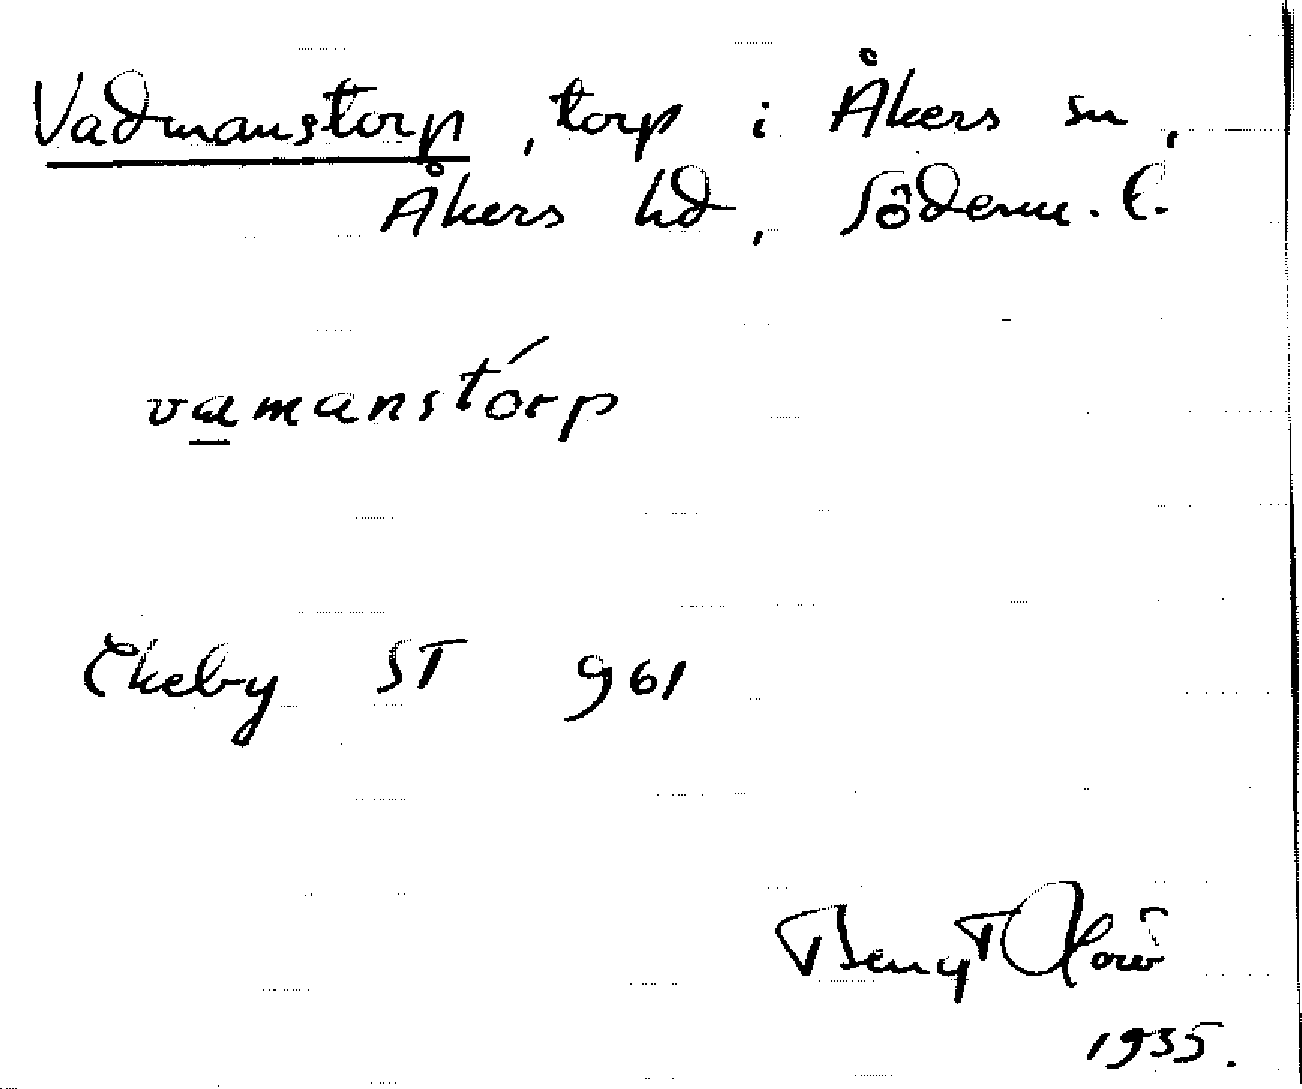 Vadmanstorp, torp i Åkers sn,
Åkers hd, Söderm. l.
vamanstórp
Ekeby ST 961
Bengt
1935.